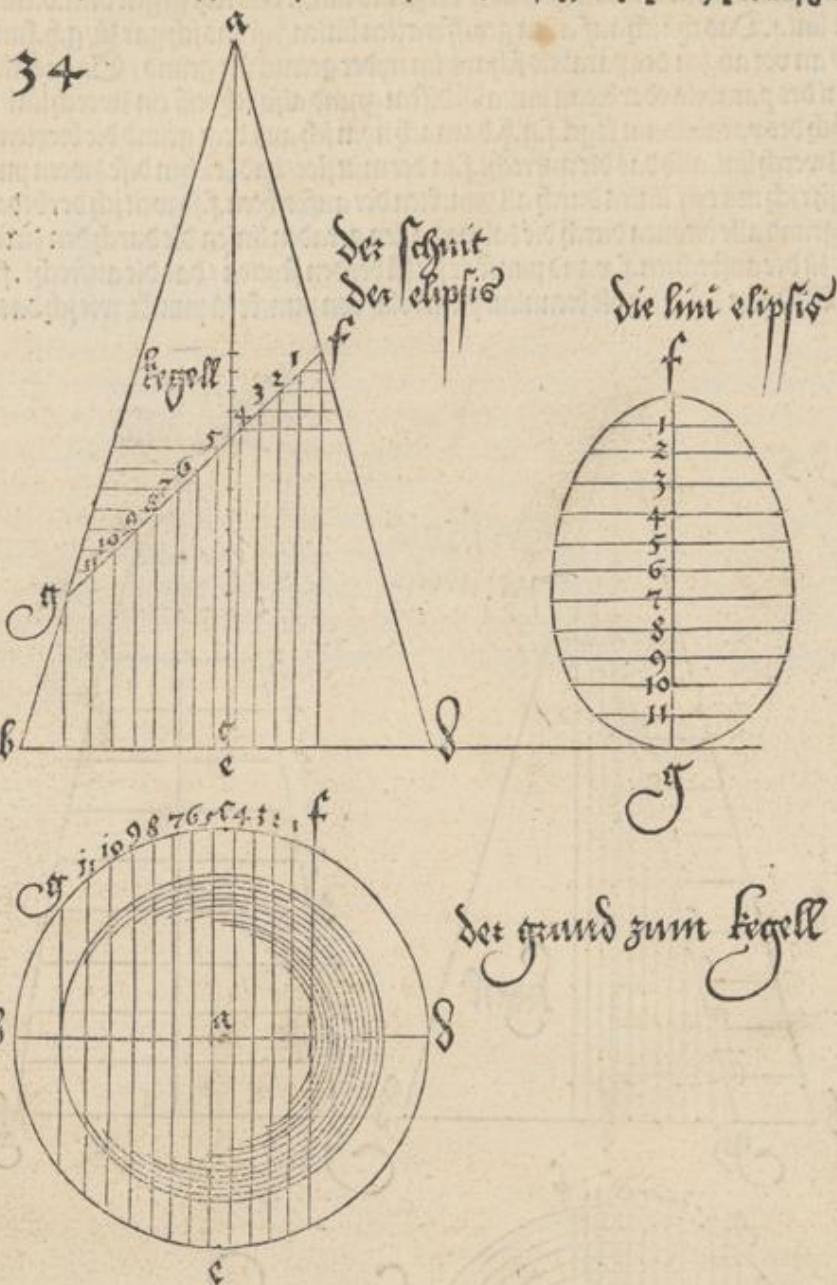 a
34
der schnit
der elipsis
die lini elipsis
f
f
kegell
1
2
3
4
5
6
7
8
9
10
11
g
1
2
3
4
5
6
7
8
9
10
11
b
c
e
d
g
g 11 10 9 8 7 6 5 c 4 3 2 1 f
der grund zum kegell
a
d
e